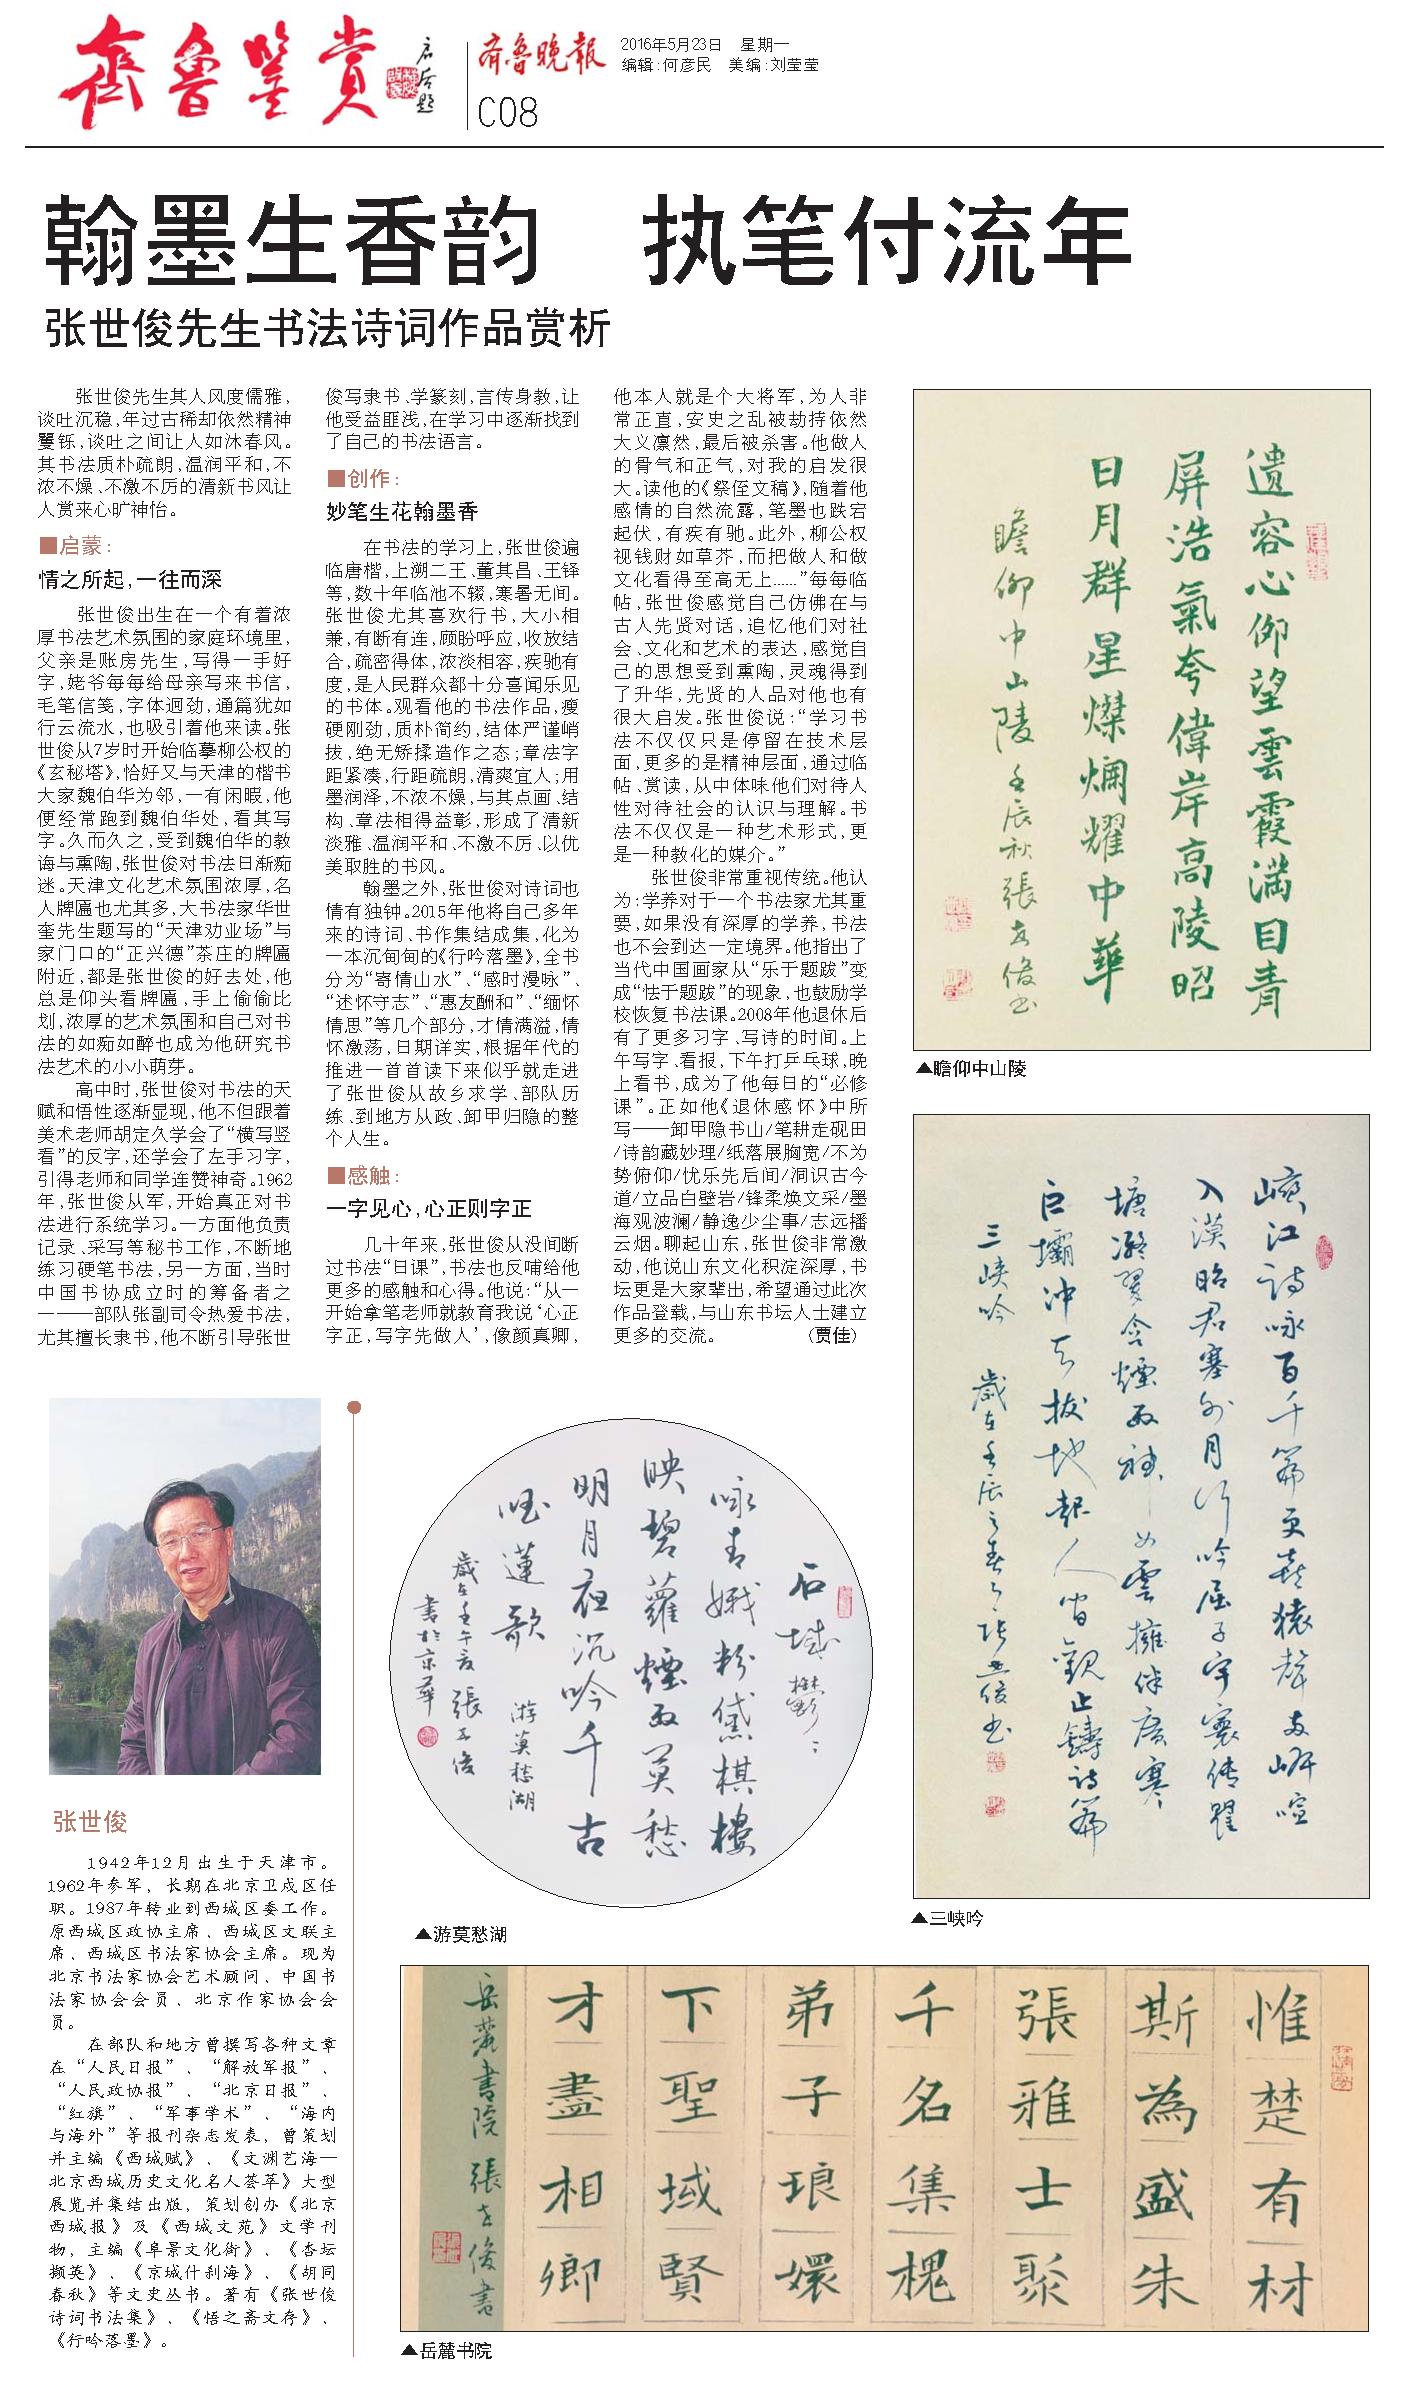 齊魯鑒賞
启名题
齐鲁晚报
C08
2016年5月23日 星期一
编辑:何彦民 美编:刘莹莹
翰墨生香韵 执笔付流年
张世俊先生书法诗词作品赏析
张世俊先生其人风度儒雅,
谈吐沉稳,年过古稀却依然精神
矍铄,谈吐之间让人如沐春风。
其书法质朴疏朗,温润平和,不
浓不燥、不激不厉的清新书风让
人赏来心旷神怡。
■启蒙:
情之所起,一往而深
张世俊出生在一个有着浓
厚书法艺术氛围的家庭环境里,
父亲是账房先生,写得一手好
字,姥爷每每给母亲写来书信,
毛笔信笺,字体迥劲,通篇犹如
行云流水,也吸引着他来读。张
世俊从7岁时开始临摹柳公权的
《玄秘塔》,恰好又与天津的楷书
大家魏伯华为邻,一有闲暇,他
便经常跑到魏伯华处,看其写
字。久而久之,受到魏伯华的教
诲与熏陶,张世俊对书法日渐痴
迷。天津文化艺术氛围浓厚,名
人牌匾也尤其多,大书法家华世
奎先生题写的“天津劝业场”与
家门口的“正兴德”茶庄的牌匾
附近,都是张世俊的好去处,他
总是仰头看牌匾,手上偷偷比
划,浓厚的艺术氛围和自己对书
法的如痴如醉也成为他研究书
法艺术的小小萌芽。
高中时,张世俊对书法的天
赋和悟性逐渐显现,他不但跟着
美术老师胡定久学会了“横写竖
看”的反字,还学会了左手习字,
引得老师和同学连赞神奇。1962
年,张世俊从军,开始真正对书
法进行系统学习。一方面他负责
记录、采写等秘书工作,不断地
练习硬笔书法,另一方面,当时
中国书协成立时的筹备者之
一——部队张副司令热爱书法,
尤其擅长隶书,他不断引导张世
俊写隶书、学篆刻,言传身教,让
他受益匪浅,在学习中逐渐找到
了自己的书法语言。
■创作:
妙笔生花翰墨香
在书法的学习上,张世俊遍
临唐楷,上溯二王、董其昌、王铎
等,数十年临池不辍,寒暑无间。
张世俊尤其喜欢行书,大小相
兼,有断有连,顾盼呼应,收放结
合,疏密得体,浓淡相容,疾驰有
度,是人民群众都十分喜闻乐见
的书体。观看他的书法作品,瘦
硬刚劲,质朴简约,结体严谨峭
拔,绝无矫揉造作之态;章法字
距紧凑,行距疏朗,清爽宜人;用
墨润泽,不浓不燥,与其点画、结
构、章法相得益彰,形成了清新
淡雅、温润平和、不激不厉、以优
美取胜的书风。
翰墨之外,张世俊对诗词也
情有独钟。2015年他将自己多年
来的诗词、书作集结成集,化为
一本沉甸甸的《行吟落墨》,全书
分为“寄情山水”、“感时漫咏”、
“述怀守志”、“惠友酬和”、“缅怀
情思”等几个部分,才情满溢,情
怀激荡,日期详实,根据年代的
推进一首首读下来似乎就走进
了张世俊从故乡求学、部队历
练、到地方从政、卸甲归隐的整
个人生。
■感触:
一字见心,心正则字正
几十年来,张世俊从没间断
过书法“日课”,书法也反哺给他
更多的感触和心得。他说:“从一
开始拿笔老师就教育我说‘心正
字正,写字先做人’,像颜真卿,
他本人就是个大将军,为人非
常正直,安史之乱被劫持依然
大义凛然,最后被杀害。他做人
的骨气和正气,对我的启发很
大。读他的《祭侄文稿》,随着他
感情的自然流露,笔墨也跌宕
起伏,有疾有驰。此外,柳公权
视钱财如草芥,而把做人和做
文化看得至高无上……”每每临
帖,张世俊感觉自己仿佛在与
古人先贤对话,追忆他们对社
会、文化和艺术的表达,感觉自
己的思想受到熏陶,灵魂得到
了升华,先贤的人品对他也有
很大启发。张世俊说:“学习书
法不仅仅只是停留在技术层
面,更多的是精神层面,通过临
帖、赏读,从中体味他们对待人
性对待社会的认识与理解。书
法不仅仅是一种艺术形式,更
是一种教化的媒介。”
张世俊非常重视传统。他认
为:学养对于一个书法家尤其重
要,如果没有深厚的学养,书法
也不会到达一定境界。他指出了
当代中国画家从“乐于题跋”变
成“怯于题跋”的现象,也鼓励学
校恢复书法课。2008年他退休后
有了更多习字、写诗的时间。上
午写字、看报,下午打乒乓球,晚
上看书,成为了他每日的“必修
课”。正如他《退休感怀》中所
写——卸甲隐书山/笔耕走砚田
/诗韵藏妙理/纸落展胸宽/不为
势俯仰/忧乐先后间/洞识古今
道/立品白壁岩/锋柔焕文采/墨
海观波澜/静逸少尘事/志远播
云烟。聊起山东,张世俊非常激
动,他说山东文化积淀深厚,书
坛更是大家辈出,希望通过此次
作品登载,与山东书坛人士建立
更多的交流。 (贾佳)
遗容心仰望雲霞满目青
屏浩氣夸偉岸高陵昭
日月群星燦爛耀中華
瞻仰中山陵 壬辰秋張世俊书
▲瞻仰中山陵
峡江詩咏百千篇更喜猿聲两岸喧
入漠昭君塞外月行吟屈子宇寰传瞿
塘凝翠含煙雨神女雲擁伴廣寒
巨壩冲天拔地起人间觀止鑄詩篇
三峡吟 歲在壬辰之春 张世俊书
▲三峡吟
石城鬱々
咏青娥粉黛棋樓
映碧蘿煙雨莫愁
明月夜沉吟千古
唱蓮歌 游莫愁湖
歲在壬午夏 張世俊
書於京華
▲游莫愁湖
惟楚有材
斯為盛朱
張雅士聚
千名集槐
弟子琅嬛
下聖域賢
才盡相卿
岳麓書院 張世俊書
▲岳麓书院
张世俊
1942年12月出生于天津市。
1962年参军,长期在北京卫戍区任
职。1987年转业到西城区委工作。
原西城区政协主席、西城区文联主
席、西城区书法家协会主席。现为
北京书法家协会艺术顾问、中国书
法家协会会员、北京作家协会会
员。
在部队和地方曾撰写各种文章
在“人民日报”、“解放军报”、
“人民政协报”、“北京日报”、
“红旗”、“军事学术”、“海内
与海外”等报刊杂志发表,曾策划
并主编《西城赋》、《文渊艺海—
北京西城历史文化名人荟萃》大型
展览并集结出版,策划创办《北京
西城报》及《西城文苑》文学刊
物,主编《阜景文化街》、《杏坛
撷英》、《京城什刹海》、《胡同
春秋》等文史丛书。著有《张世俊
诗词书法集》、《悟之斋文存》、
《行吟落墨》。